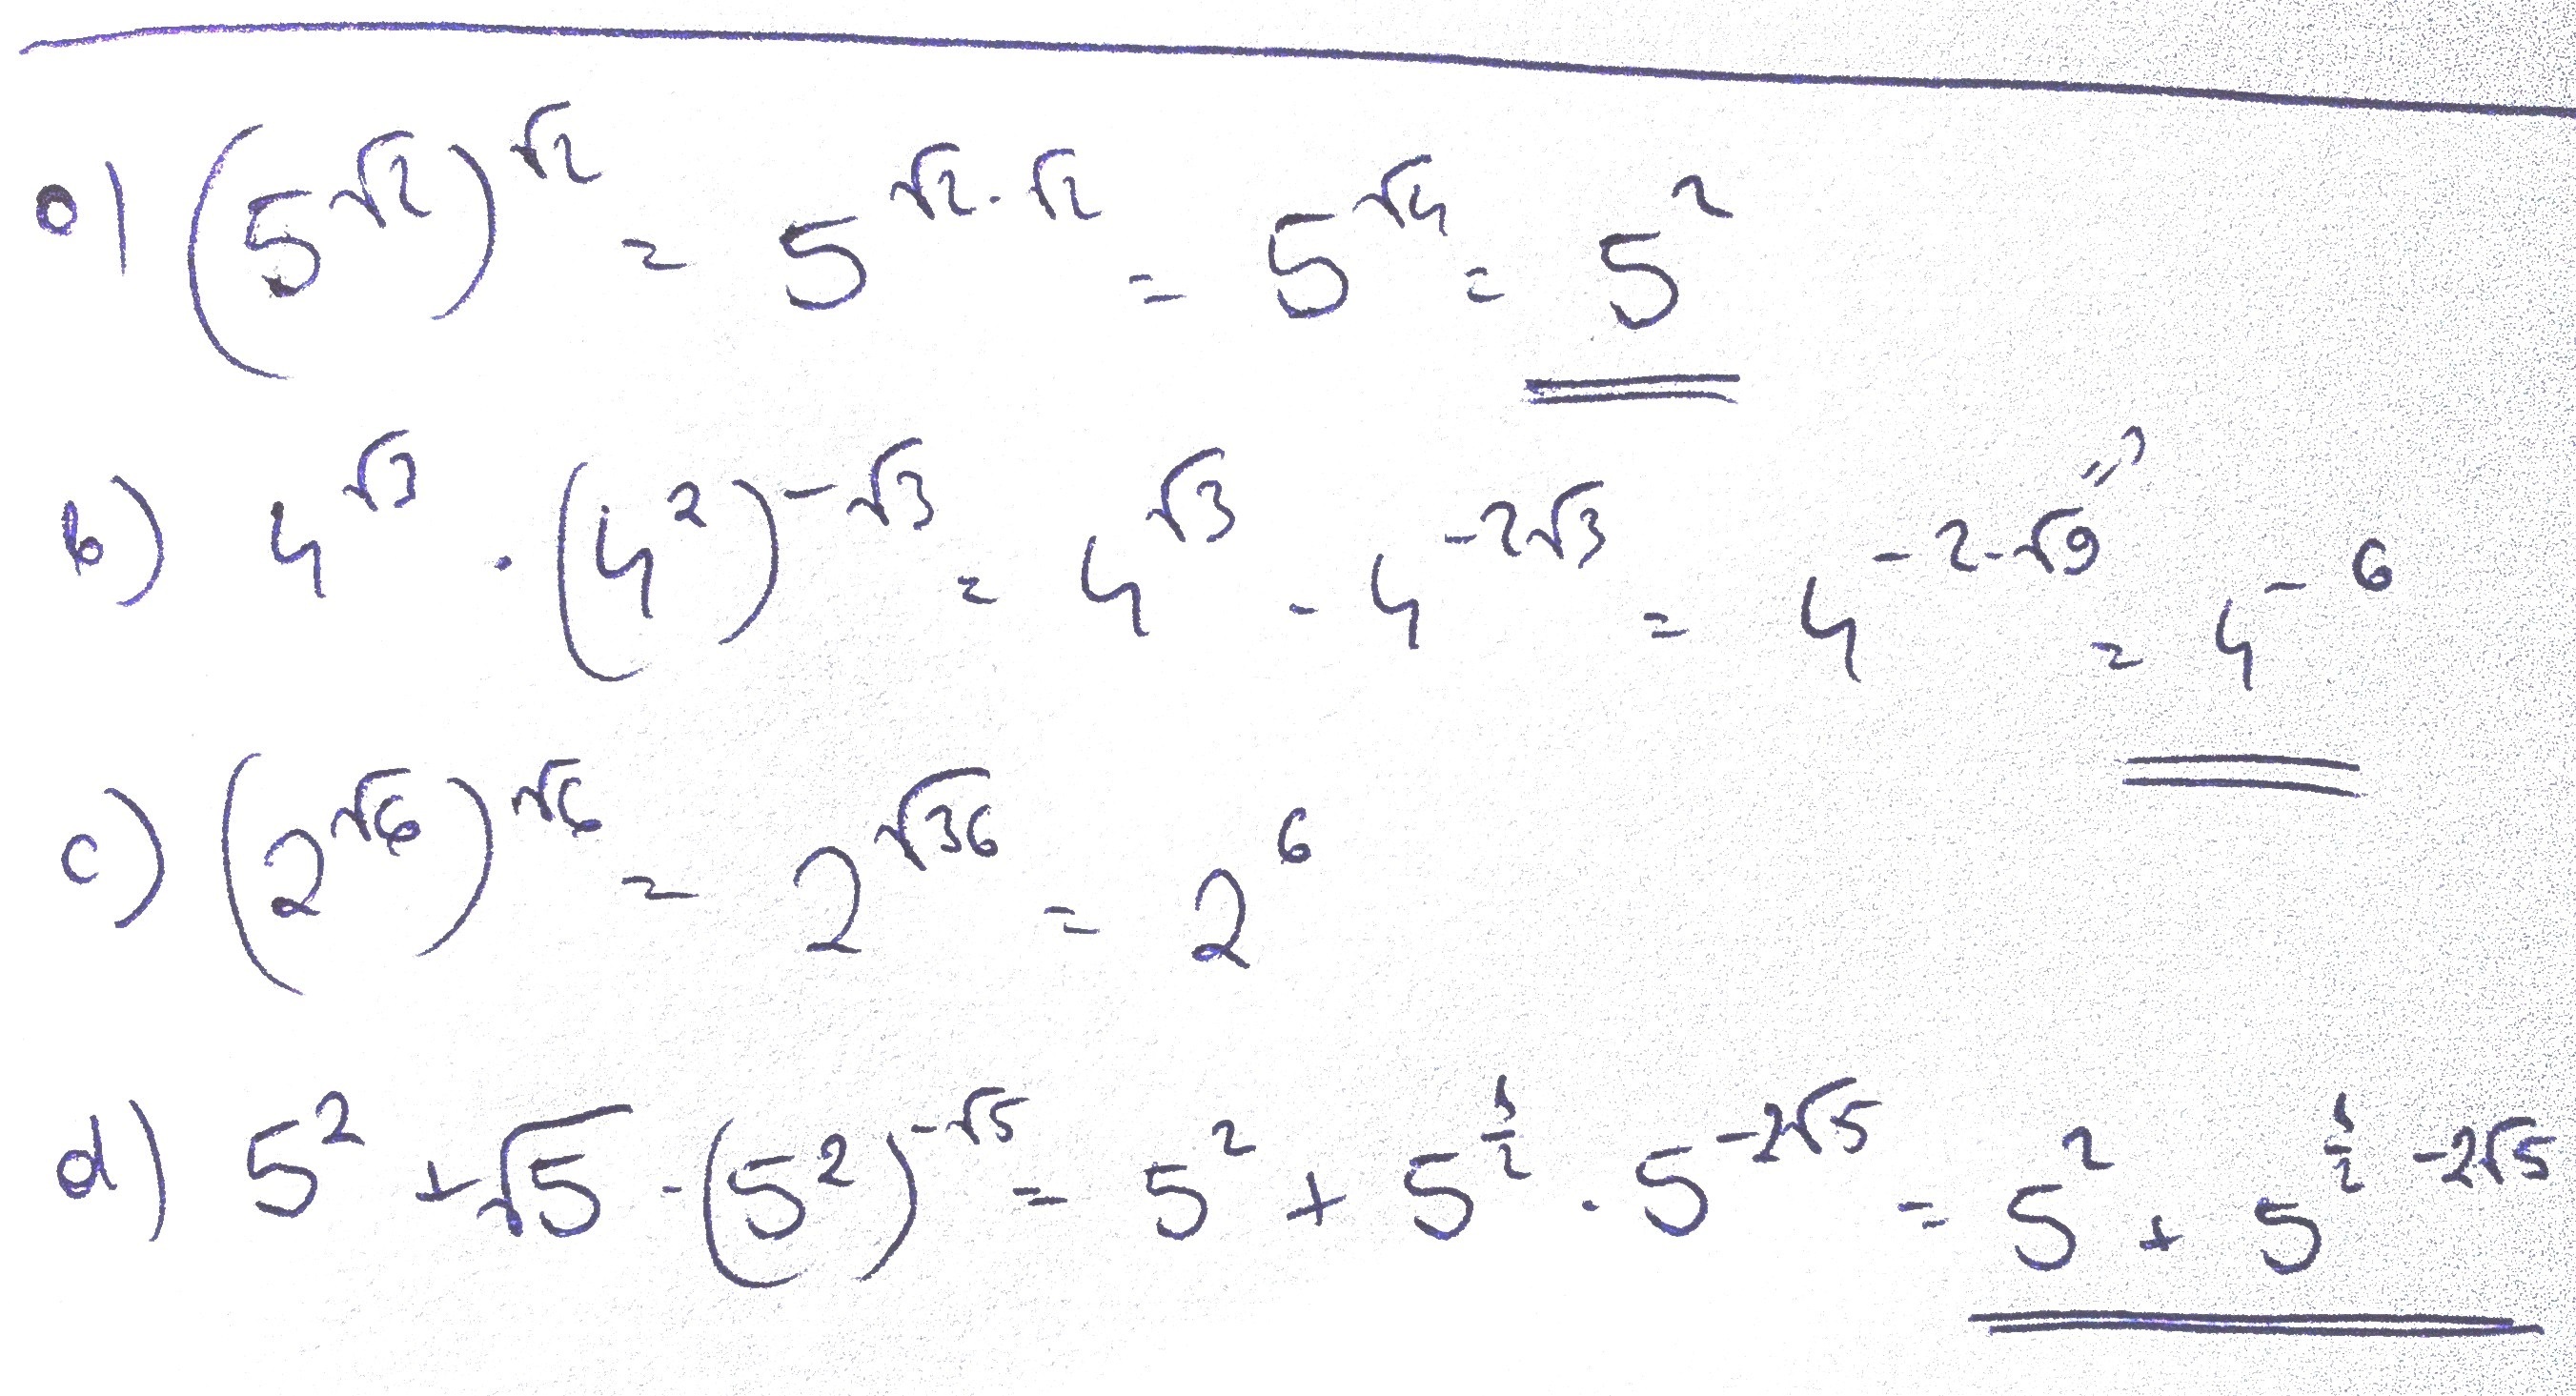 a) (5^√2)^√2 = 5^(√2·√2) = 5^√4 = 5^2
b) 4^√3 · (4^2)^(-√3) = 4^√3 · 4^(-2√3) = 4^(-2·√9) = 4^(-6)
=3
c) (2^√6)^√6 = 2^√36 = 2^6
d) 5^2 + √5 · (5^2)^(-√5) = 5^2 + 5^(1/2) · 5^(-2√5) = 5^2 + 5^(1/2 - 2√5)